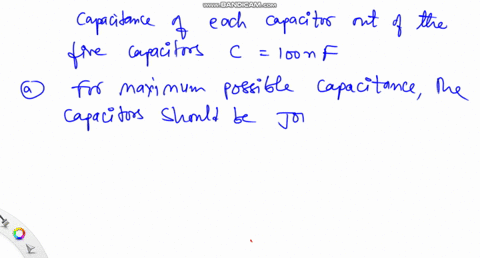 www.BANDICAM.com
Capacitance of each capacitor out of the
five capacitors C = 100nF
(a) For maximum possible capacitance, the
capacitors should be joi